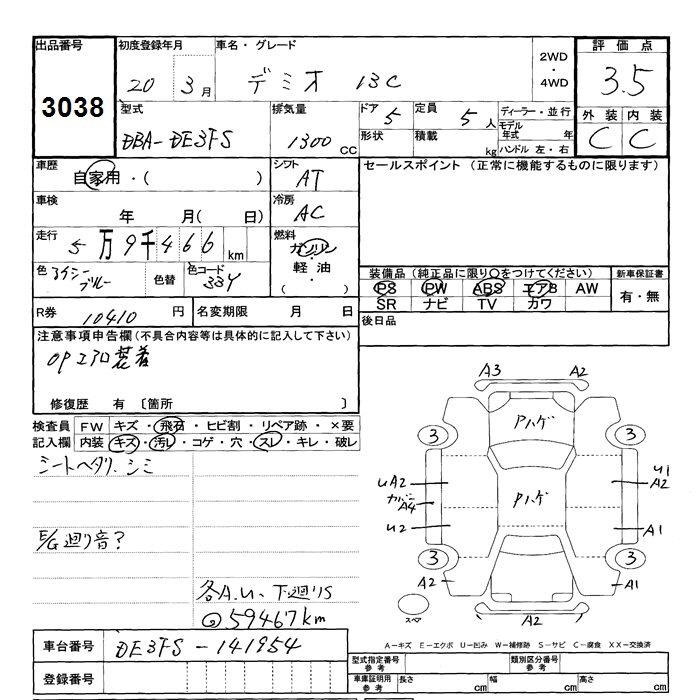 出品番号 初度登録年月 車名・グレード 評価点
3038 20 3月 デミオ 13C 2WD・4WD 3.5
型式 排気量 ドア 5 定員 5人 ディーラー・並行 外装 内装
DBA-DE3FS 1300CC 形状 積載 kg モデル年式 年 C C
ハンドル 左・右
車歴 シフト セールスポイント (正常に機能するものに限ります)
自家用・( ) AT
車検 冷房
年 月( 日) AC
走行 5万9千466km 燃料 ガソリン・軽油・( )
色 アイシーブルー 色替 色コード 33Y
装備品 (純正品に限り○をつけてください) 新車保証書
PS PW ABS エアB AW 有・無
SR ナビ TV カワ
R券 10410円 名変期限 月 日 後日品
注意事項申告欄(不具合内容等は具体的に記入して下さい)
OPエアロ装着
修復歴 有 〔箇所 〕
検査員 FW キズ・飛石・ヒビ割・リペア跡・×要
記入欄 内装 キズ・汚れ・コゲ・穴・スレ・キレ・破レ
シートヘタリ、シミ
E/G廻り音?
各A.U、下廻りS
@59467km
A3 A2
Pハゲ
3 3
UA2 U1
A2
カバー
A4 Pハゲ
U2 A1
3 3
A2 A1
スペア A2
A-キズ E-エクボ U-凹み W-補修跡 S-サビ C-腐食 XX-交換済
車台番号 DE3FS-141954
登録番号
型式指定番号 参考 類別区分番号 参考
車庫証明用 参考 長さ cm 幅 cm 高さ cm